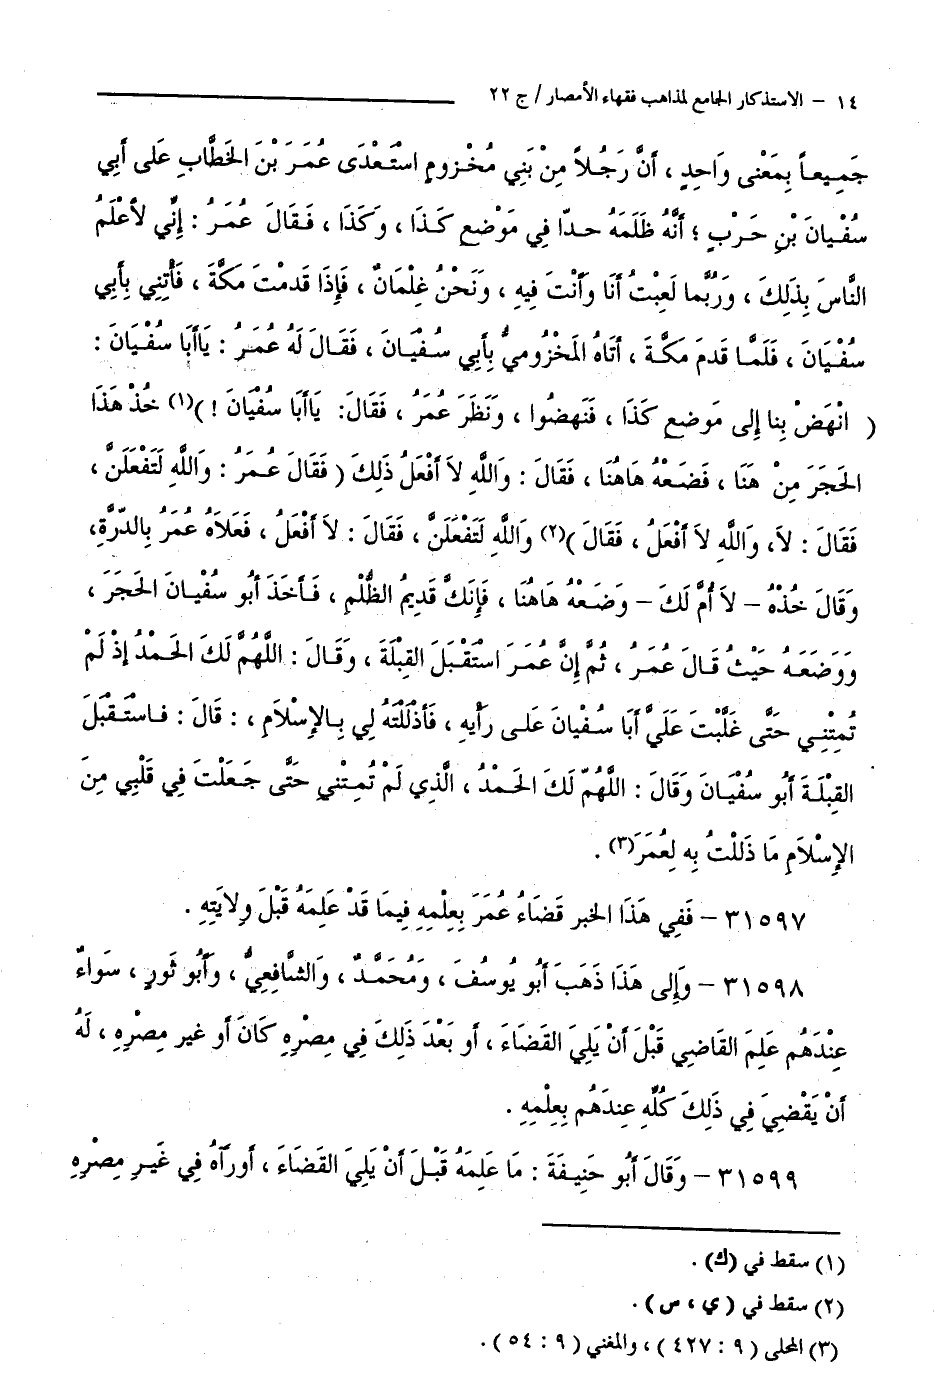 ١٤ - الاستذكار الجامع لمذاهب فقهاء الأمصار / ج ٢٢
جَمِيعاً بِمَعْنى وَاحِدٍ ، أَنَّ رَجُلاً مِنْ بَنِي مُخْزومٍ اسْتَعْدَى عُمَرَ بْنَ الخَطَّابِ عَلى أَبِي
سُفْيانَ بْنِ حَرْبٍ ؛ أَنَّهُ ظَلَمَهُ حدّا فِي مَوْضعِ كَذَا ، وكَذَا ، فَقَالَ عُمَرُ : إِنِّي لأَعْلَمُ
النَّاسَ بِذَلِكَ ، وَرُبَّما لَعِبْتُ أَنَا وأَنْتَ فِيهِ ، ونَحْنُ غِلْمَانٌ ، فَإِذَا قَدمْتَ مَكَّةَ ، فَأْتِنِي بِأَبِي
سُفْيَانَ ، فَلَمَّا قَدمَ مَكَّةَ ، أَتَاهُ المَخْزُوميُّ بِأَبِي سُفْيَانَ ، فَقَالَ لَهُ عُمَرُ : يَاأَبَا سُفْيَانَ :
( انْهَضْ بِنا إِلى مَوضعِ كَذَا ، فَنَهضُوا ، وَنَظَرَ عُمَرُ ، فَقَالَ: يَاأَبَا سُفْيَانَ ! )(١) خُذْ هَذَا
الحَجَرَ مِنْ هَنَا ، فَضَعْهُ هَاهُنَا ، فَقَالَ : وَاللَّهِ لاَ أَفْعَلُ ذَلِكَ ( فَقَالَ عُمَرُ : وَاللَّهِ لَتَفْعَلَنَّ ،
فَقَالَ : لاَ، وَاللَّهِ لاَ أَفْعَلُ ، فَقَالَ )(٢) وَاللَّهِ لَتَفْعَلَنَّ ، فَقَالَ : لاَ أَفْعَلُ ، فَعَلاَهُ عُمَرُ بِالدّرَّةِ،
وَقَالَ خُذْهُ - لاَ أُمَّ لَكَ - وضَعْهُ هَاهُنَا ، فَإِنَكَّ قَدِيمُ الظُّلْمِ ، فَأَخَذَ أَبُو سُفْيانَ الحَجَرَ ،
وَوَضَعَهُ حَيْثُ قَالَ عُمَرُ ، ثُمَّ إِنَّ عُمَرَ اسْتَقْبَلَ القِبْلَةَ ، وَقَالَ : اللَّهُمَّ لَكَ الحَمْدُ إِذْ لَمْ
تُمِتْنِي حَتَّى غَلَّبْتَ عَلَيَّ أَبَا سُفْيانَ عَلى رَأْيِهِ ، فَأَذْلَلْتَهُ لِي بِالإِسْلاَمِ ، : قَالَ : فاسْتَقْبَلَ
القِبْلَةَ أَبُو سُفْيَانَ وَقَالَ : اللَّهُمّ لَكَ الحَمْدُ ، الَّذِي لَمْ تُمِتْنِي حَتَّى جَعَلْتَ فِي قَلْبِي مِنَ
الإِسْلاَمِ مَا ذَلَلْتُ بِهِ لِعُمَرَ(٣) .
٣١٥٩٧ - فَفِي هَذَا الخبرِ قَضَاءُ عُمَرَ بِعِلْمِهِ فِيمَا قَدْ عَلِمَهُ قَبْلَ وِلايَتِهِ .
٣١٥٩٨ - وَإِلى هَذَا ذَهَبَ أَبُو يُوسُفَ ، ومُحَمَّدٌ ، وَالشَّافِعِيُّ ، وأَبُو ثَورٍ ، سَواءٌ
عِنْدَهُم عَلِمَ القَاضِي قَبْلَ أَنْ يَلِيَ القَضَاءَ ، أَو بَعْدَ ذَلِكَ فِي مِصْرِهِ كَانَ أَو غيرِ مِصْرِهِ ، لَهُ
أَنْ يَقْضِيَ فِي ذَلِكَ كُلِّهِ عِندَهُم بِعِلْمِهِ .
٣١٥٩٩ - وَقَالَ أَبُو حَنِيفَةَ : مَا عَلِمَهُ قَبْلَ أَنْ يَلِيَ القَضَاءَ ، أَورآهُ فِي غَيرِ مِصْرِهِ
(١) سقط في (ك) .
(٢) سقط في ( ي ، س ) .
(٣) المحلى ( ٩ : ٤٢٧ ) ، والمغني ( ٩ : ٥٤ ) .